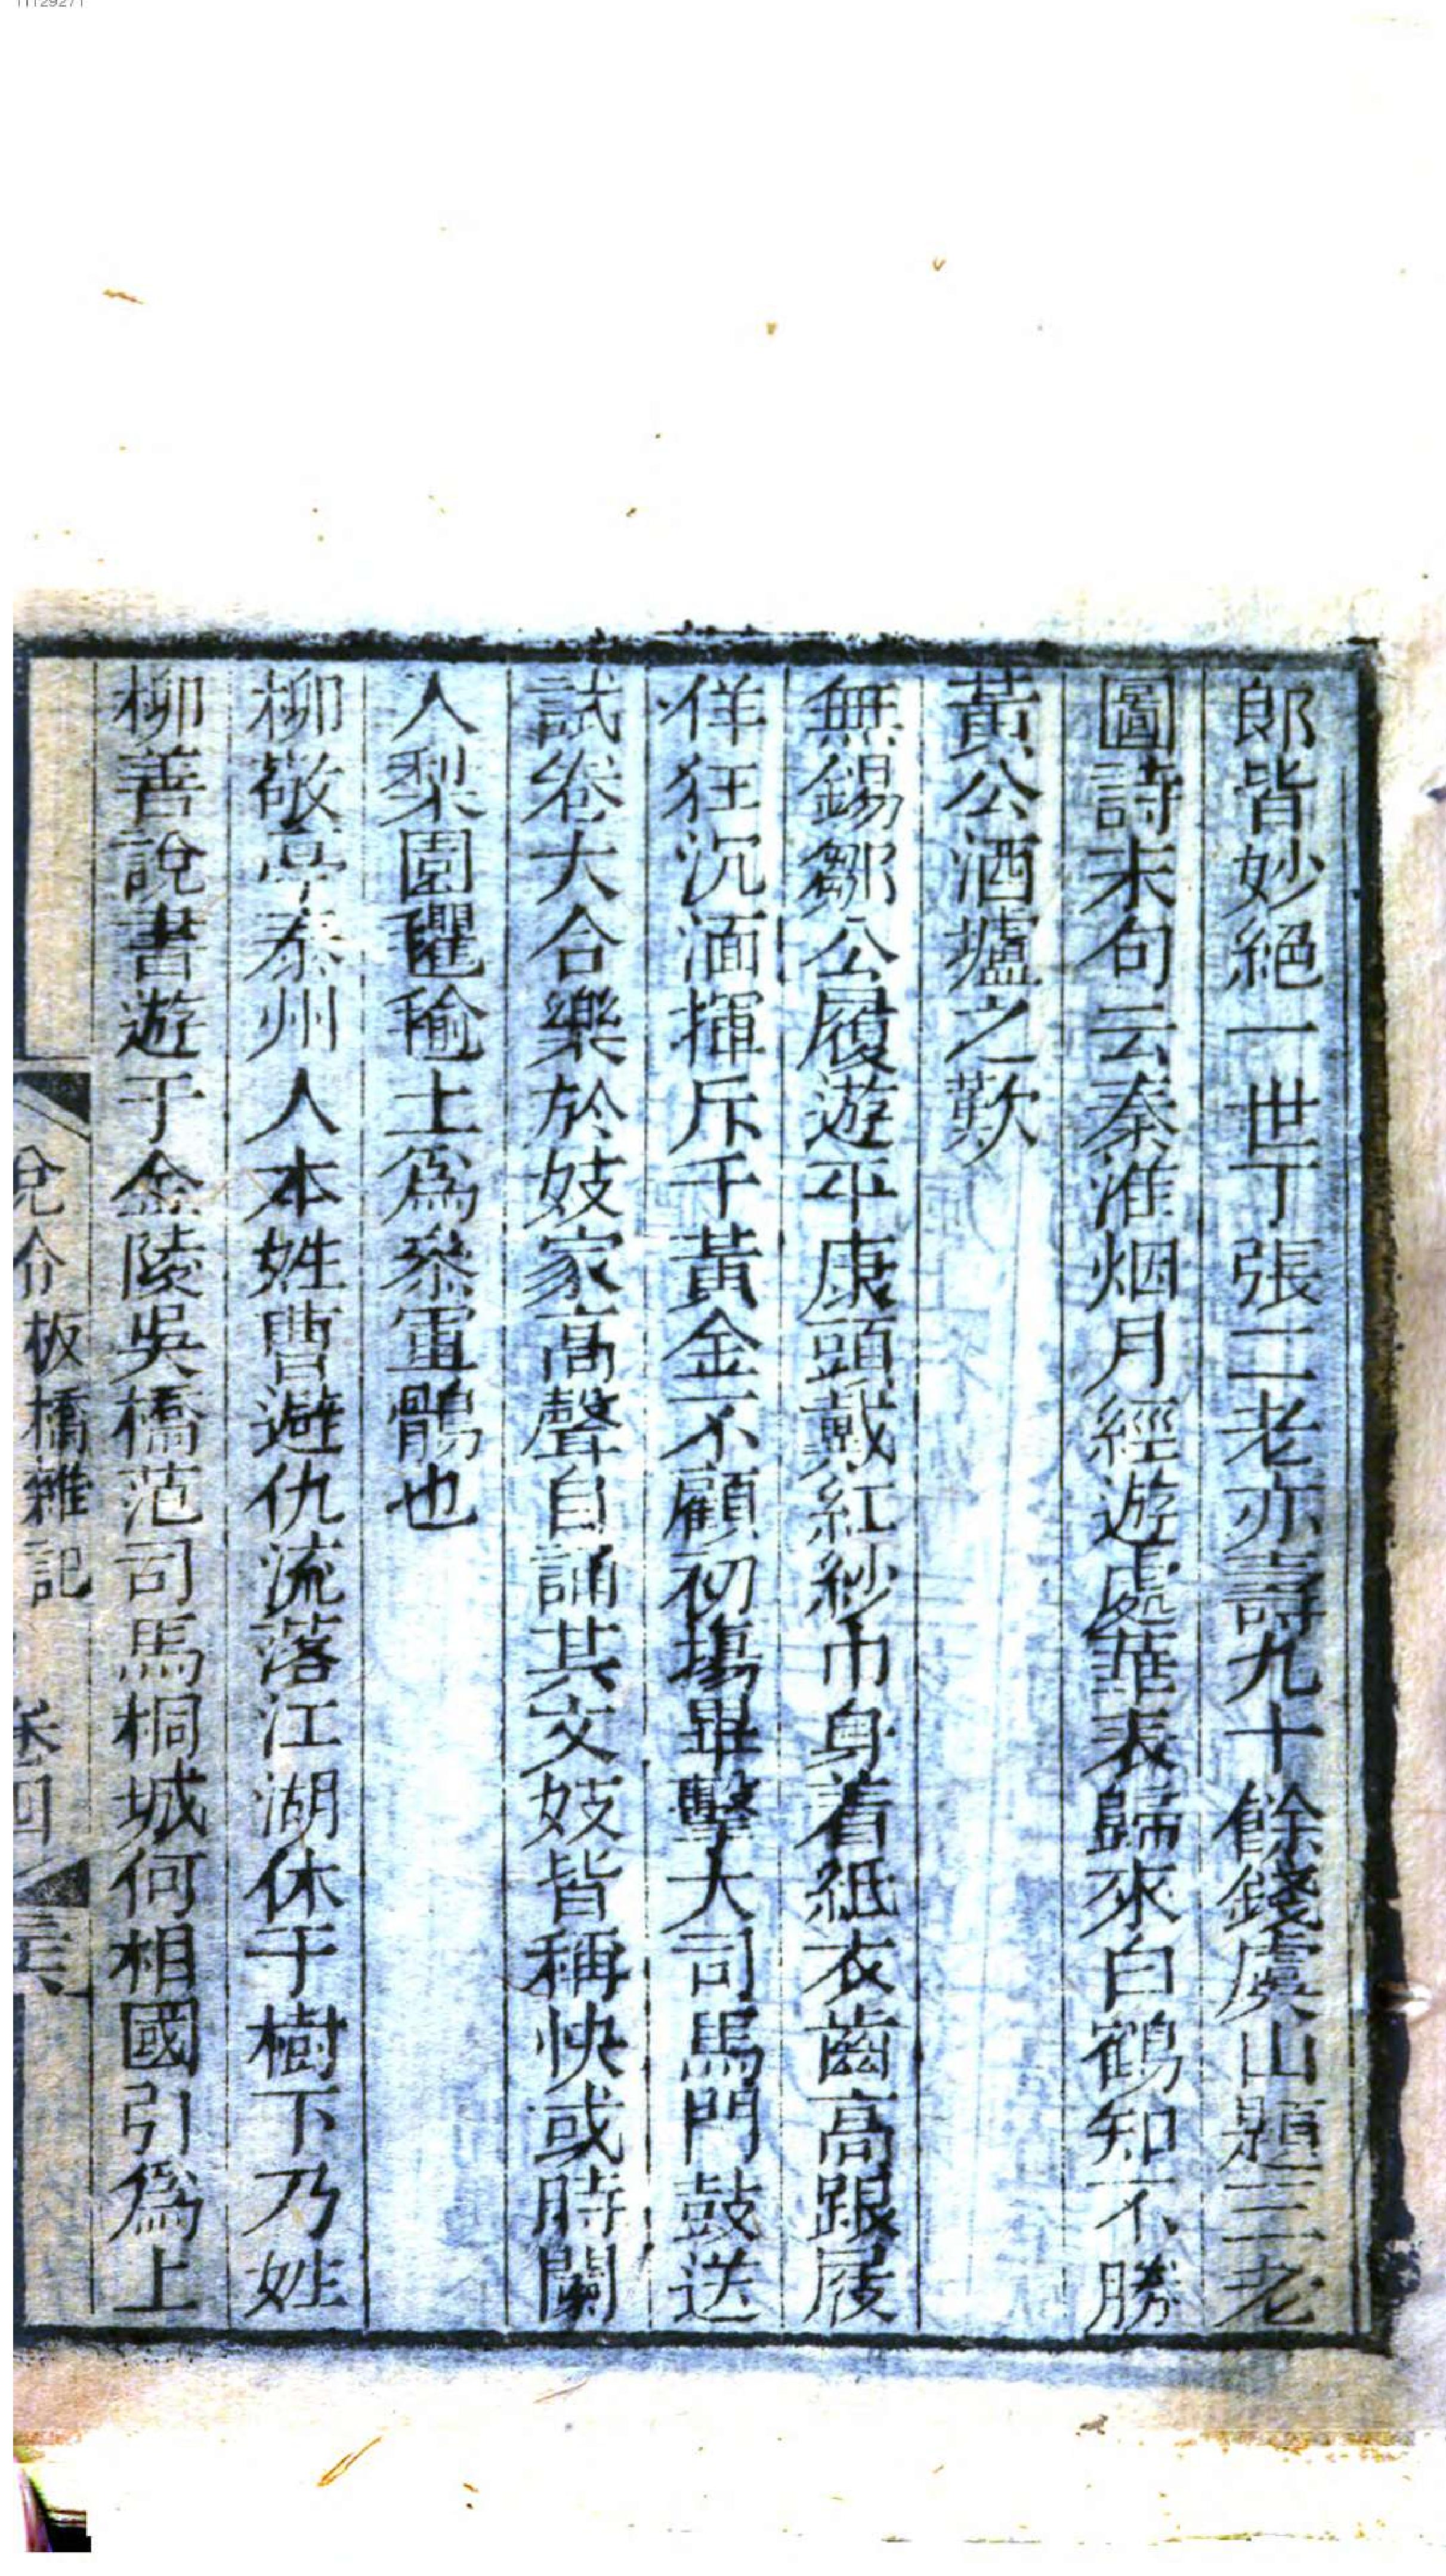 郎皆妙絕一世丁張二老亦壽九十餘錢虞山題三老
圖詩末句云秦淮烟月經遊處華表歸來白鶴知不勝
黃公酒壚之歎
無錫鄒公履遊平康頭戴紅紗巾身着紙衣齒高跟屐
佯狂沉湎揮斥千黃金不顧初塲畢擊大司馬門鼓送
試卷大合樂於妓家高聲自誦其文妓皆稱快或時闌
人梨園氍毹上爲叅軍鶻也
柳敬亭泰州人本姓曹避仇流落江湖休于樹下乃姓
柳善說書遊于金陵吳橋范司馬桐城何相國引爲上
板橋雜記